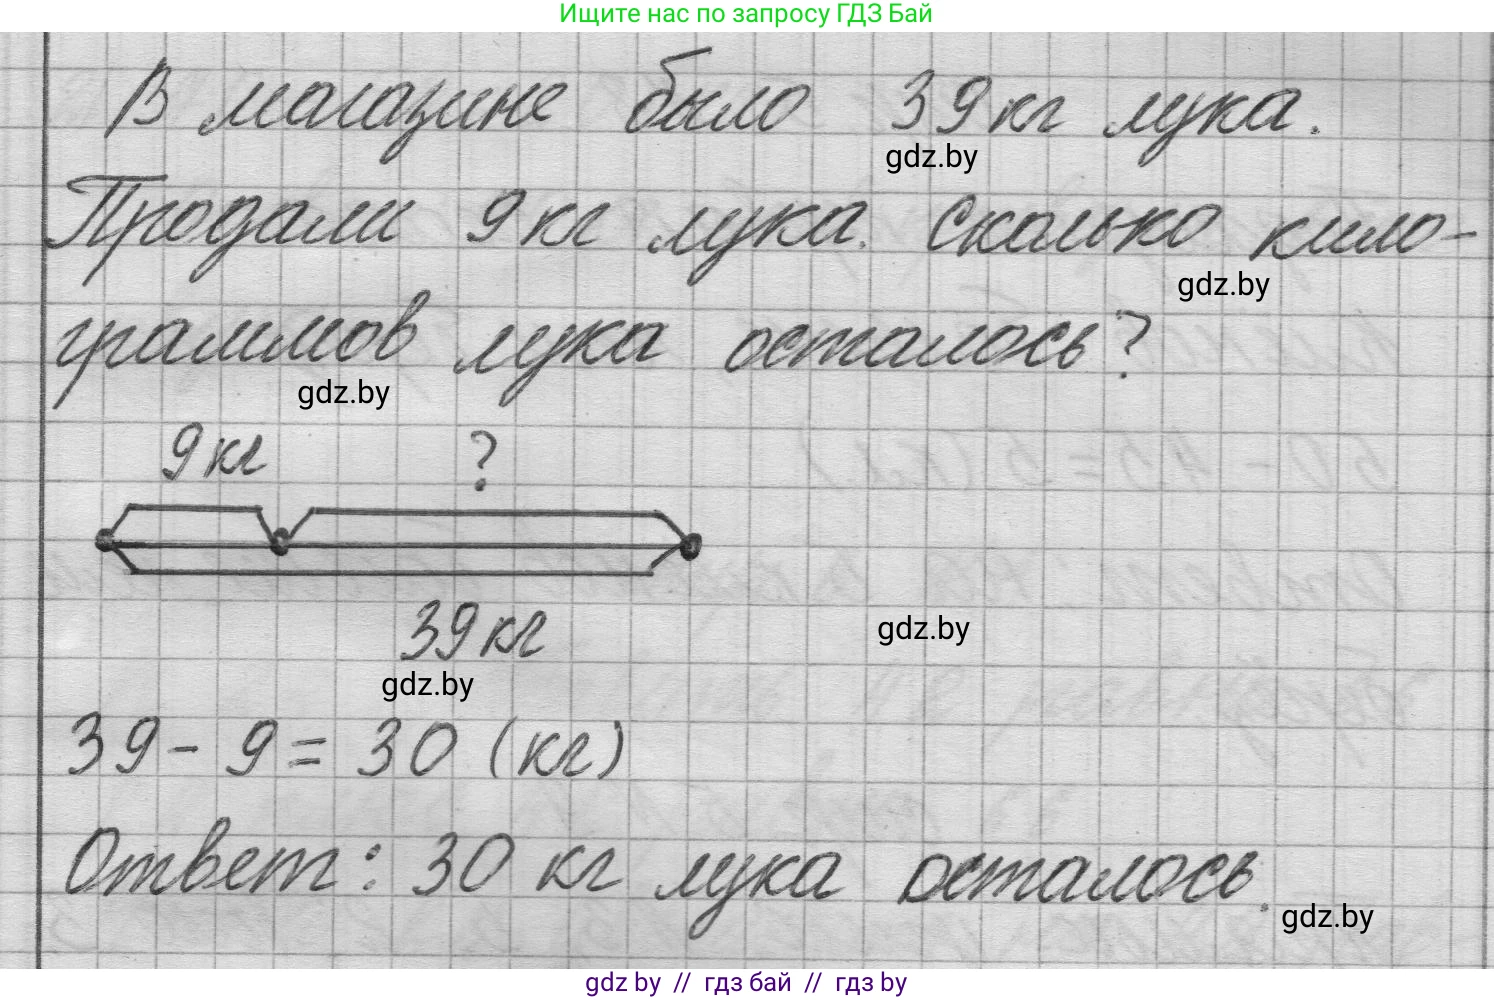 Ищите нас по запросу ГДЗ Бай
В магазине было 39 кг лука.
gdz.by
Продали 9 кг лука. Сколько кило-
gdz.by
граммов лука осталось?
gdz.by
9 кг ?
39 кг
gdz.by
gdz.by
39 - 9 = 30 (кг)
Ответ: 30 кг лука осталось.
gdz.by
gdz.by // гдз бай // gdz.by